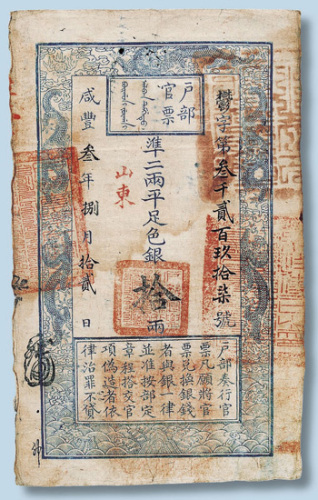 戶部
官票
欝字第叁千貳百玖拾柒號
準二兩平足色銀拾兩
山東
咸豐叁年捌月拾貳日
戶部奏行官
票凡願將官
票兌換銀錢
者與銀一律
並准按部定
章程搭交官
項偽造者依
律治罪不貸